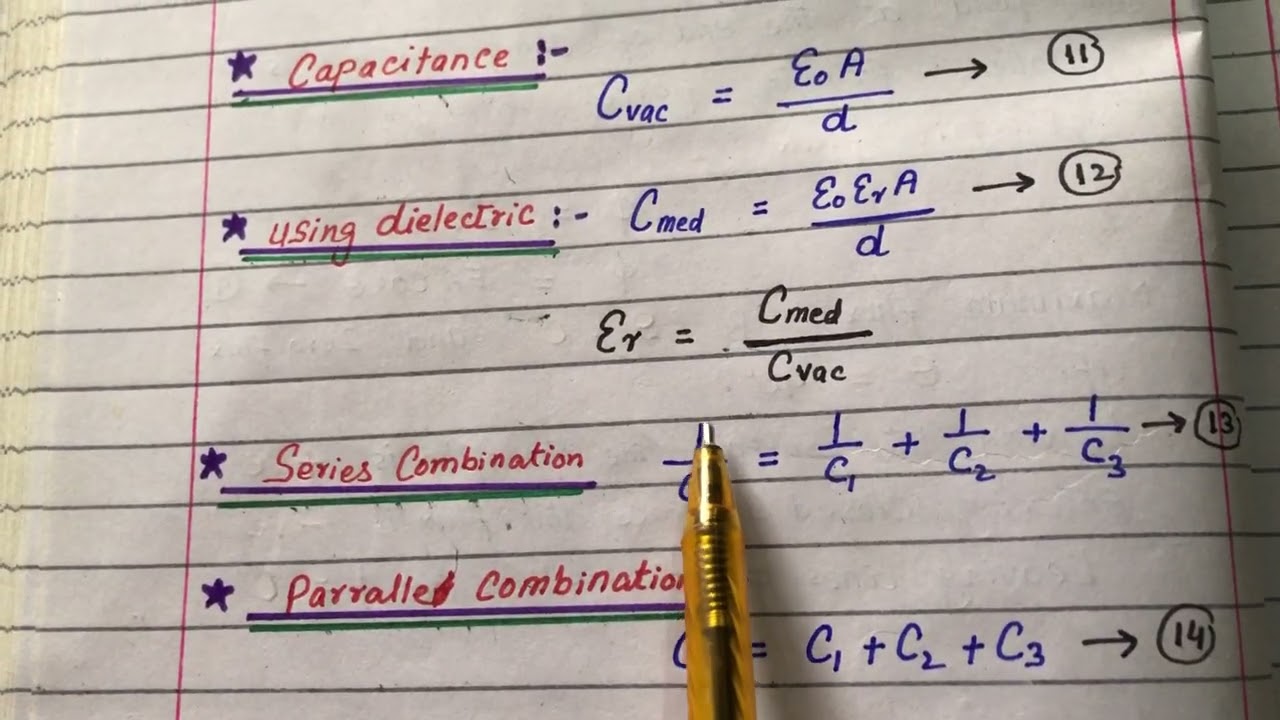 ★ Capacitance :- Cvac = ε₀A/d → ⑪
★ using dielectric :- Cmed = ε₀εᵣA/d → ⑫
εᵣ = Cmed/Cvac
★ Series Combination 1/C = 1/C₁ + 1/C₂ + 1/C₃ → ⑬
★ Parralel Combination
C = C₁ + C₂ + C₃ → ⑭